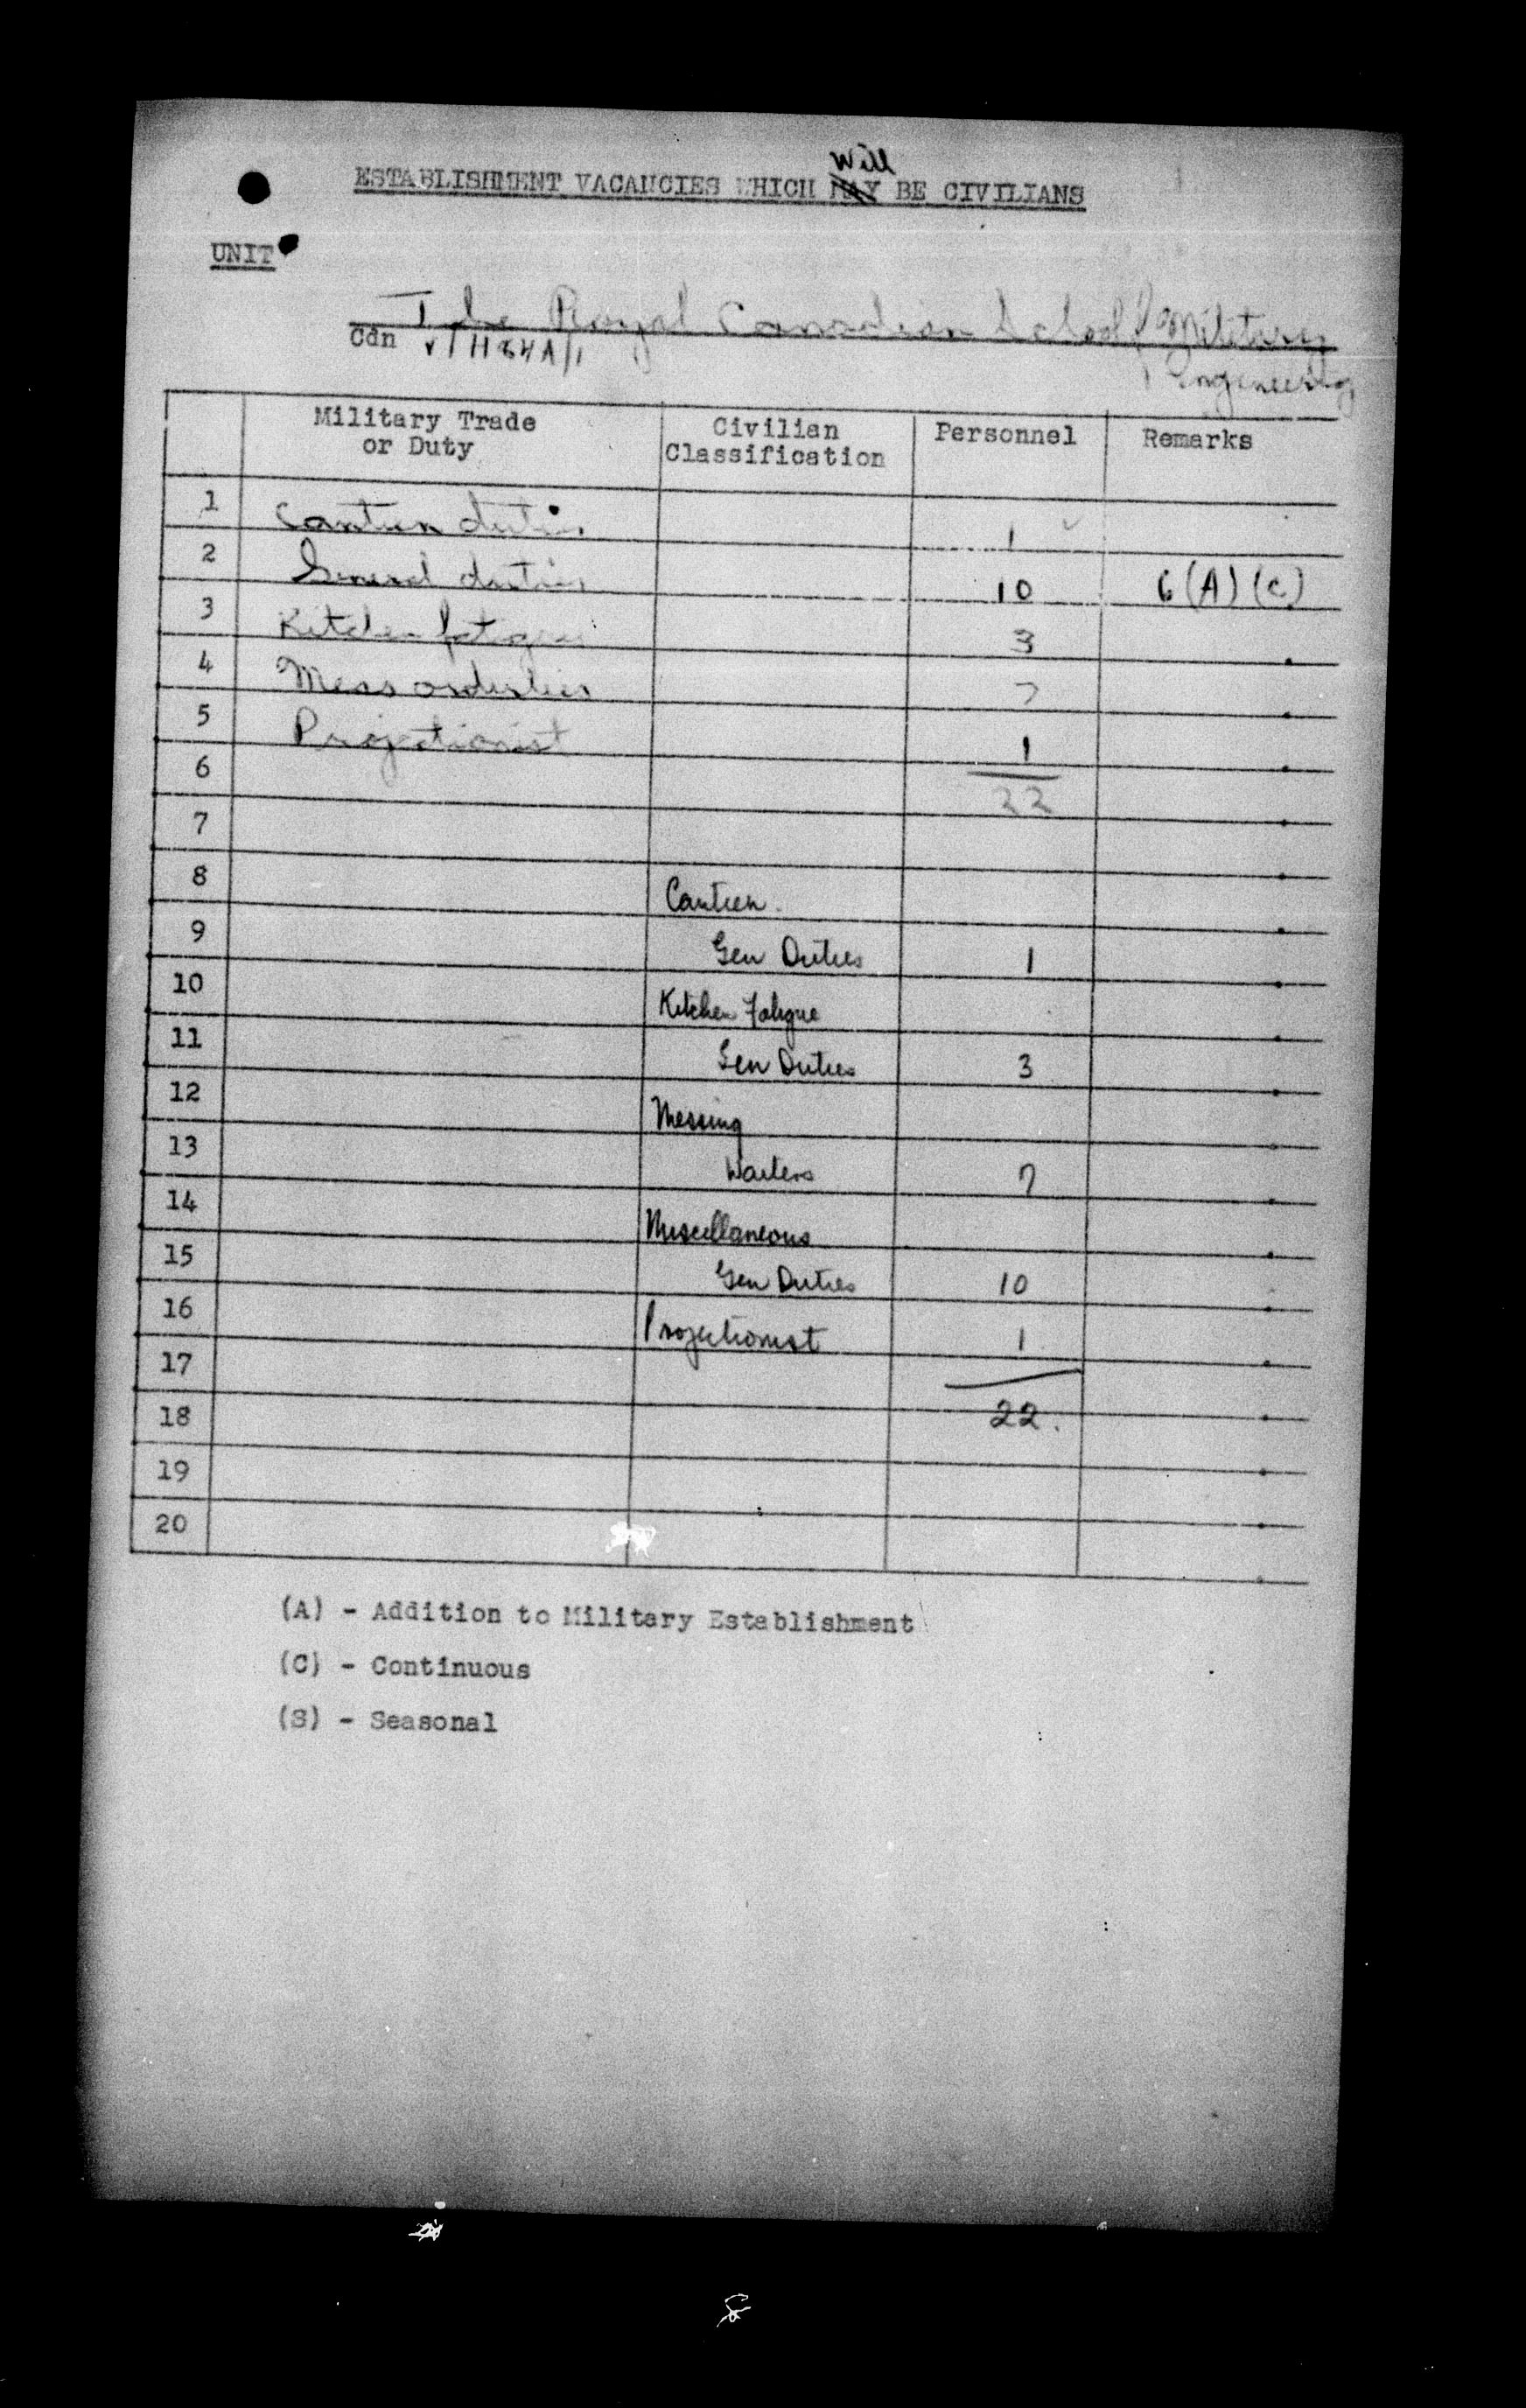 Will
ESTABLISHMENT VACANCIES WHICH MAY BE CIVILIANS
UNIT
The Royal Canadian School of Military
Engineering
Cdn
Military Trade or Duty Civilian Classification Personnel Remarks
1 Canteen duties 1
2 General duties 10 6 (A) (C)
3 Kitchen fatigues 3
4 Mess orderlies 7
5 Projectionist 1
6 22
7
8 Canteen
9 Gen Duties 1
10 Kitchen Fatigue
11 Gen Duties 3
12 Messing
13 Waiters 7
14 Miscellaneous
15 Gen Duties 10
16 Projectionist 1
17
18 22.
19
20
(A) - Addition to Military Establishment
(C) - Continuous
(S) - Seasonal